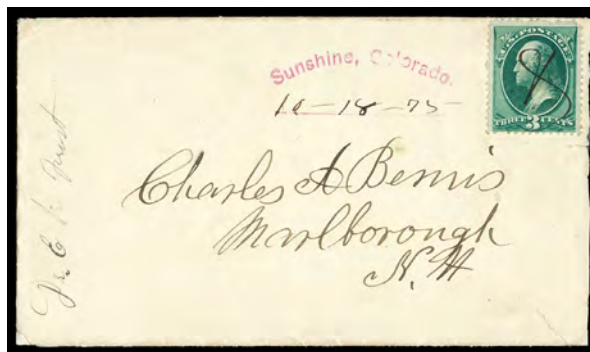 Sunshine, Colorado.
10-18-75
U.S. POSTAGE
THREE 3 CENTS
Charles A Bemis
Marlborough
N.H